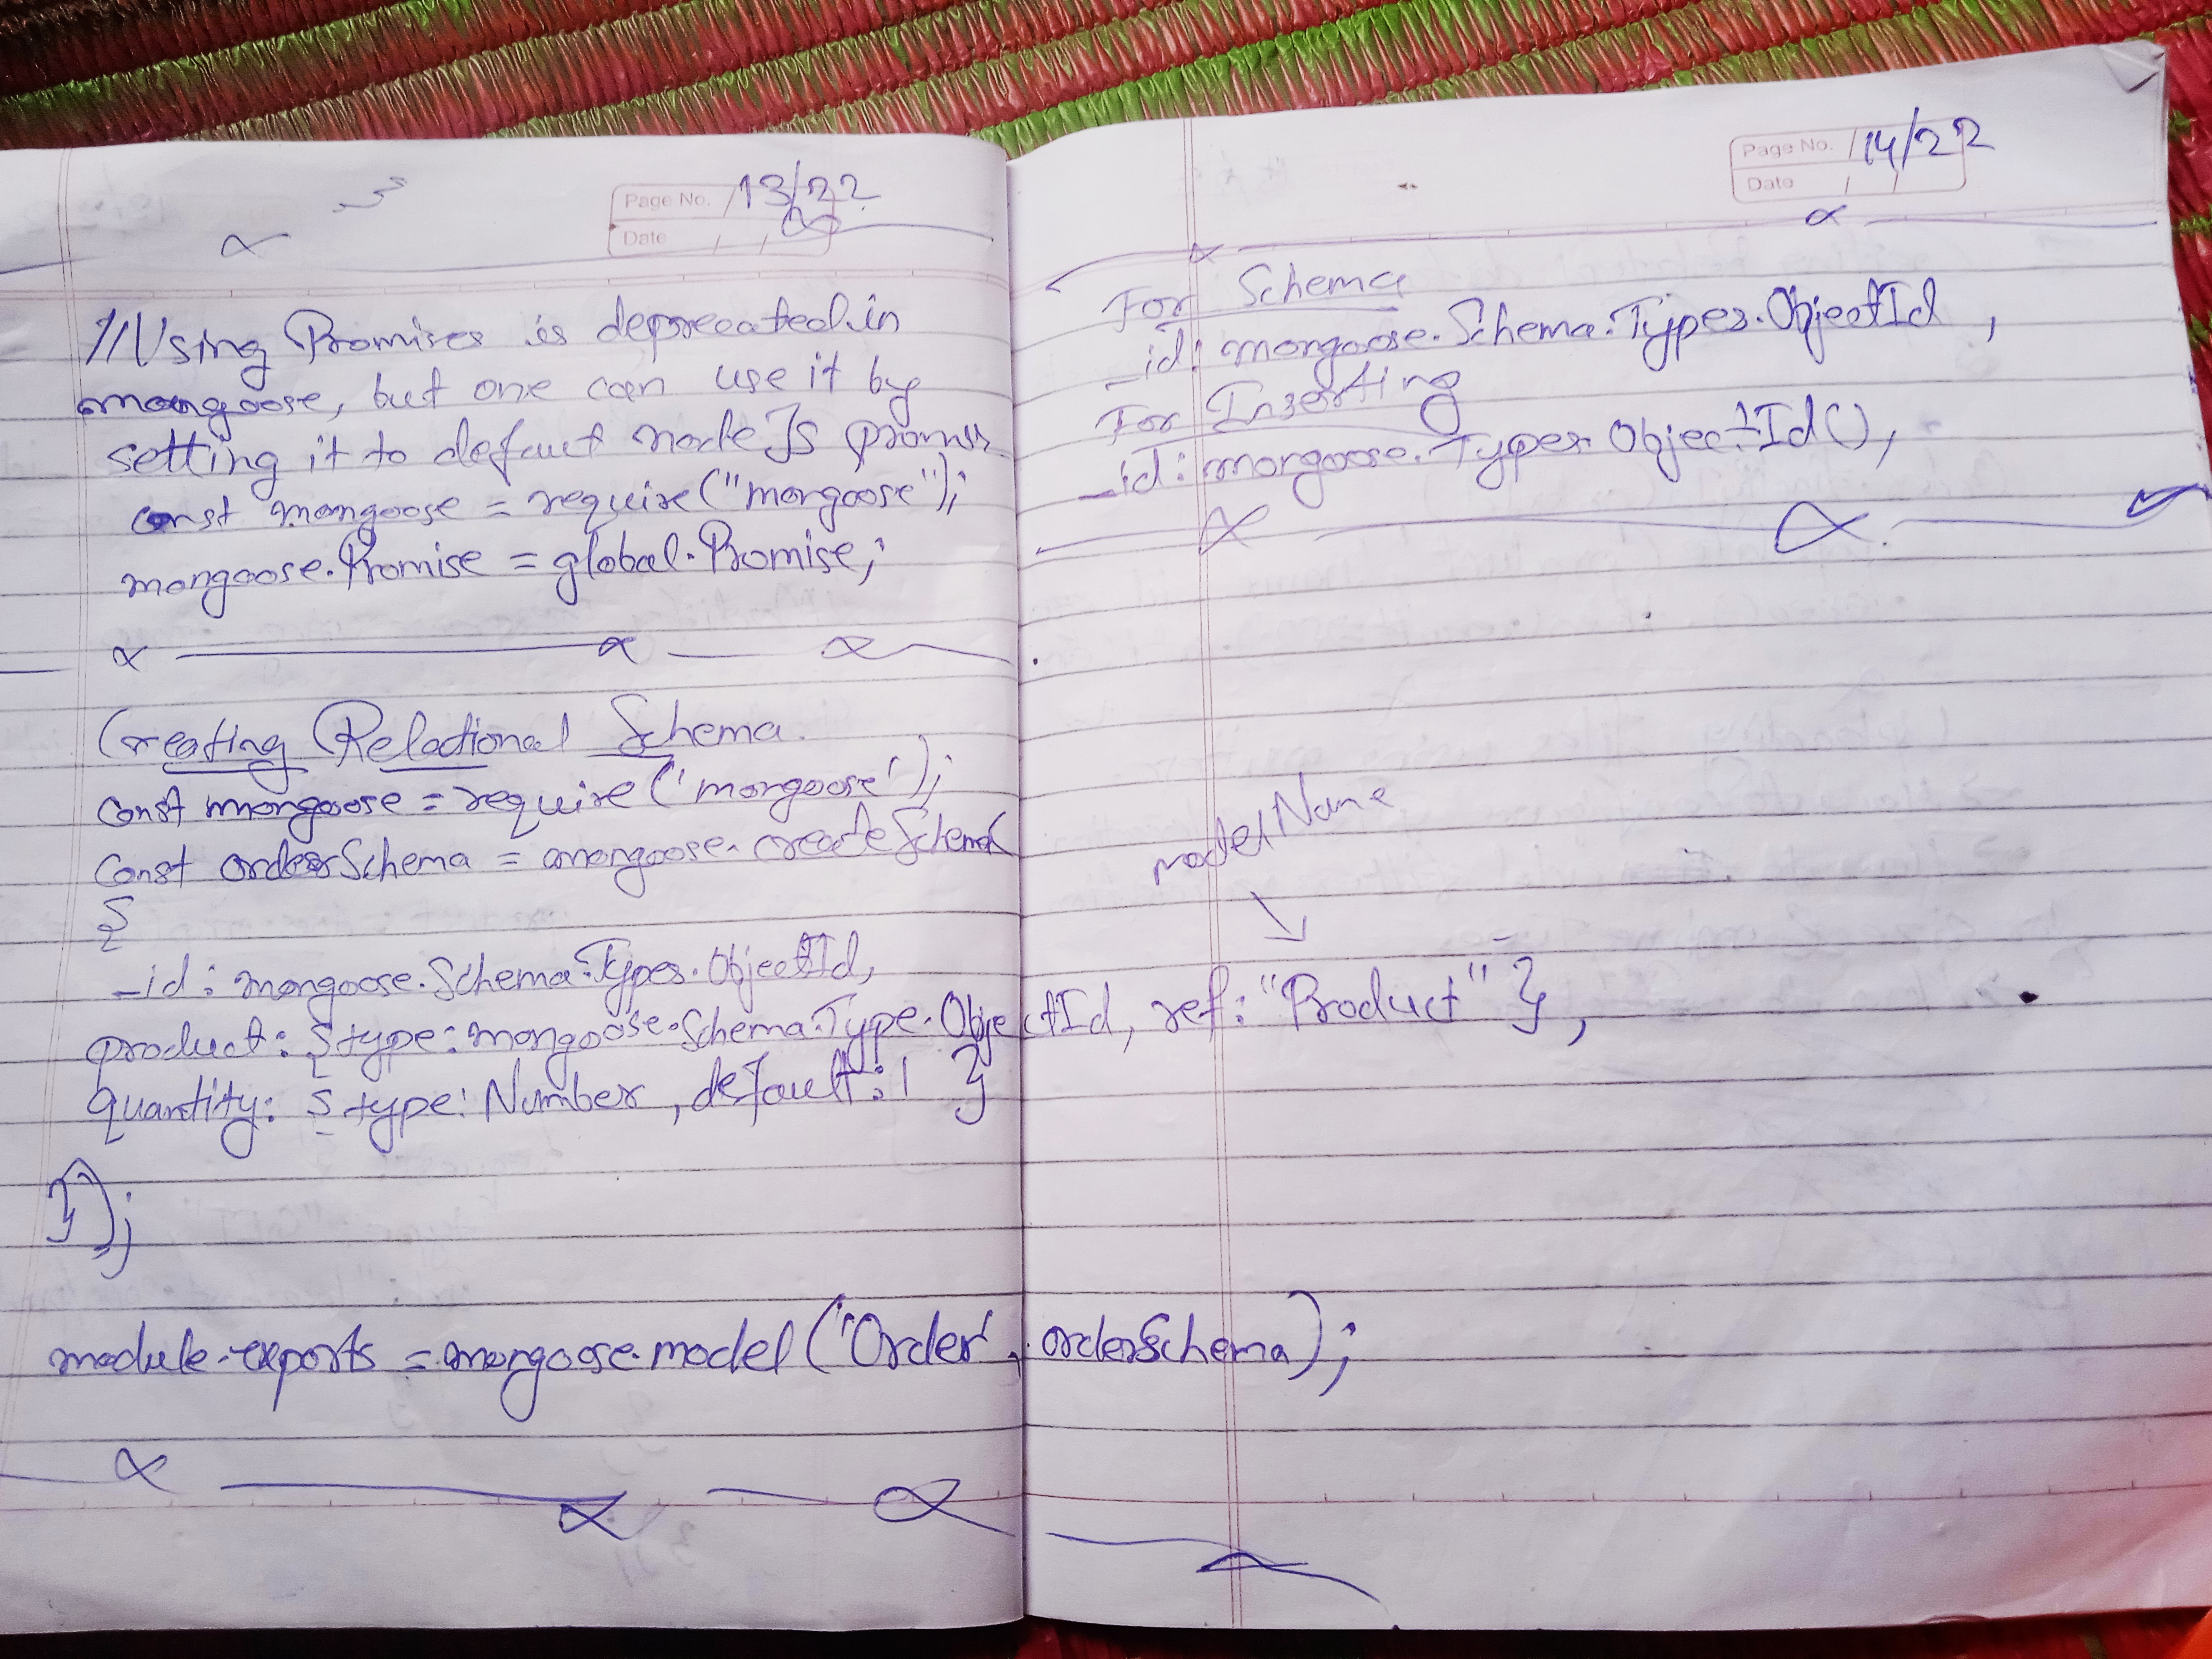 Page No. 13/22
Date / /
//Using Promises is deprecated in
mongoose, but one can use it by
setting it to defaut node Js promises
const mongoose = require("mongoose");
mongoose.Promise = global.Promise;
Creating Relational Schema.
const mongoose = require('mongoose');
const orderSchema = mongoose.createSchema(
{
_id: mongoose.Schema.Types.ObjectId,
product: {type: mongoose.Schema.Type.ObjectId, ref: "Product" },
quantity: {type: Number, default: 1 }
});
module.exports = mongoose.model('Order', orderSchema);
Page No. 14/22
Date / /
For Schema
_id: mongoose.Schema.Types.ObjectId,
For Inserting
_id: mongoose.Types.ObjectId(),
modelName